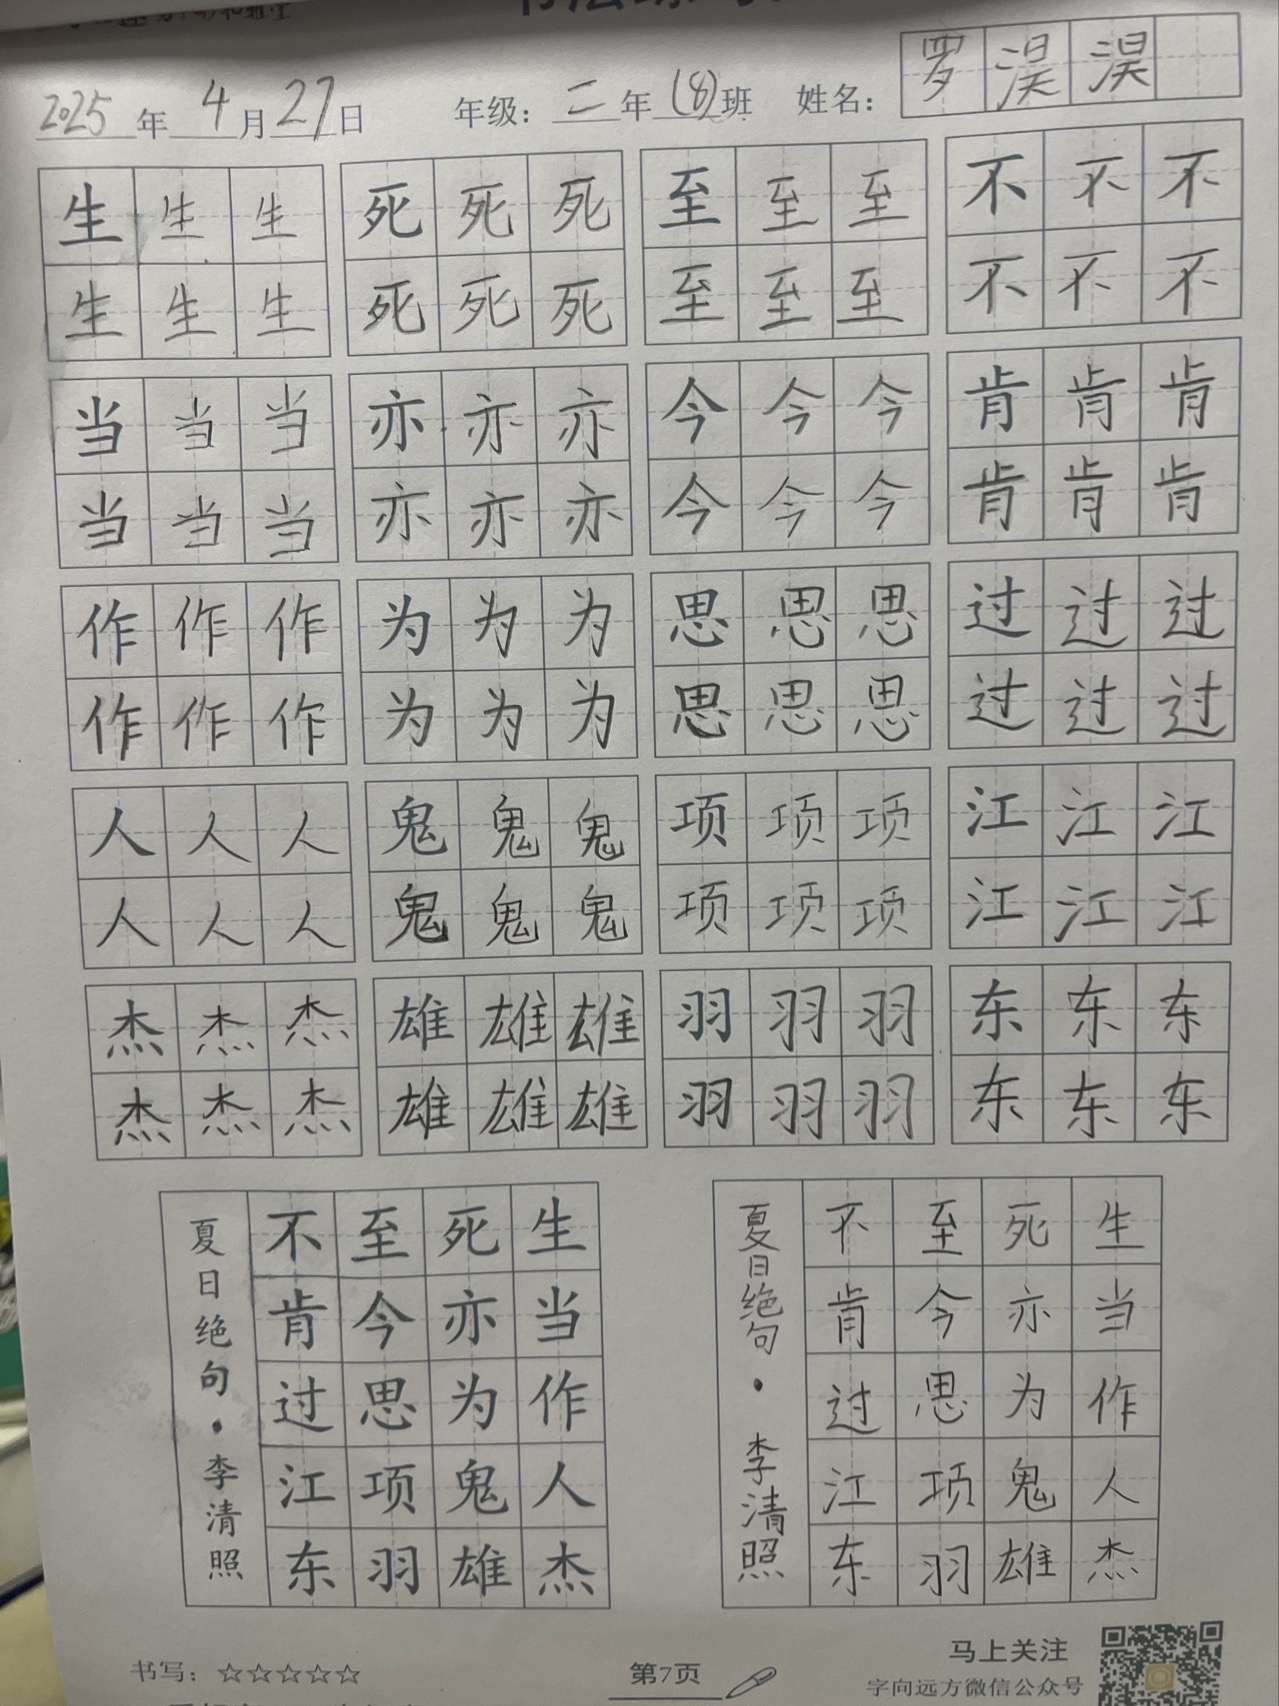 2025年4月27日 年级：二年(8)班 姓名：罗淏淏
生生生 死死死 至至至 不不不
生生生 死死死 至至至 不不不
当当当 亦亦亦 今今今 肯肯肯
当当当 亦亦亦 今今今 肯肯肯
作作作 为为为 思思思 过过过
作作作 为为为 思思思 过过过
人人人 鬼鬼鬼 项项项 江江江
人人人 鬼鬼鬼 项项项 江江江
杰杰杰 雄雄雄 羽羽羽 东东东
杰杰杰 雄雄雄 羽羽羽 东东东
生当作人杰
死亦为鬼雄
至今思项羽
不肯过江东
夏日绝句·李清照
生当作人杰
死亦为鬼雄
至今思项羽
不肯过江东
夏日绝句·李清照
书写：☆☆☆☆☆
第7页
马上关注
字向远方微信公众号